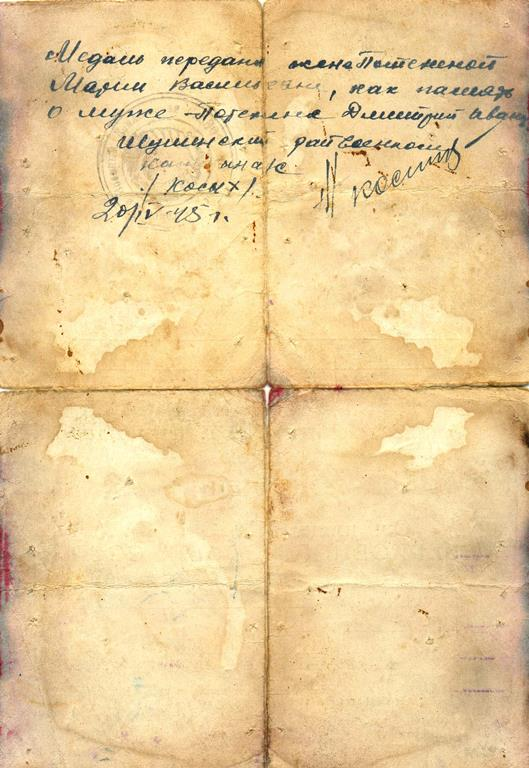 Медаль передана жене Потехиной
Марии Васильевне, как память
о муже Потехина Дмитрий Иван
Шушенский райвоенком
/ Косых /
20/IV-45 г.